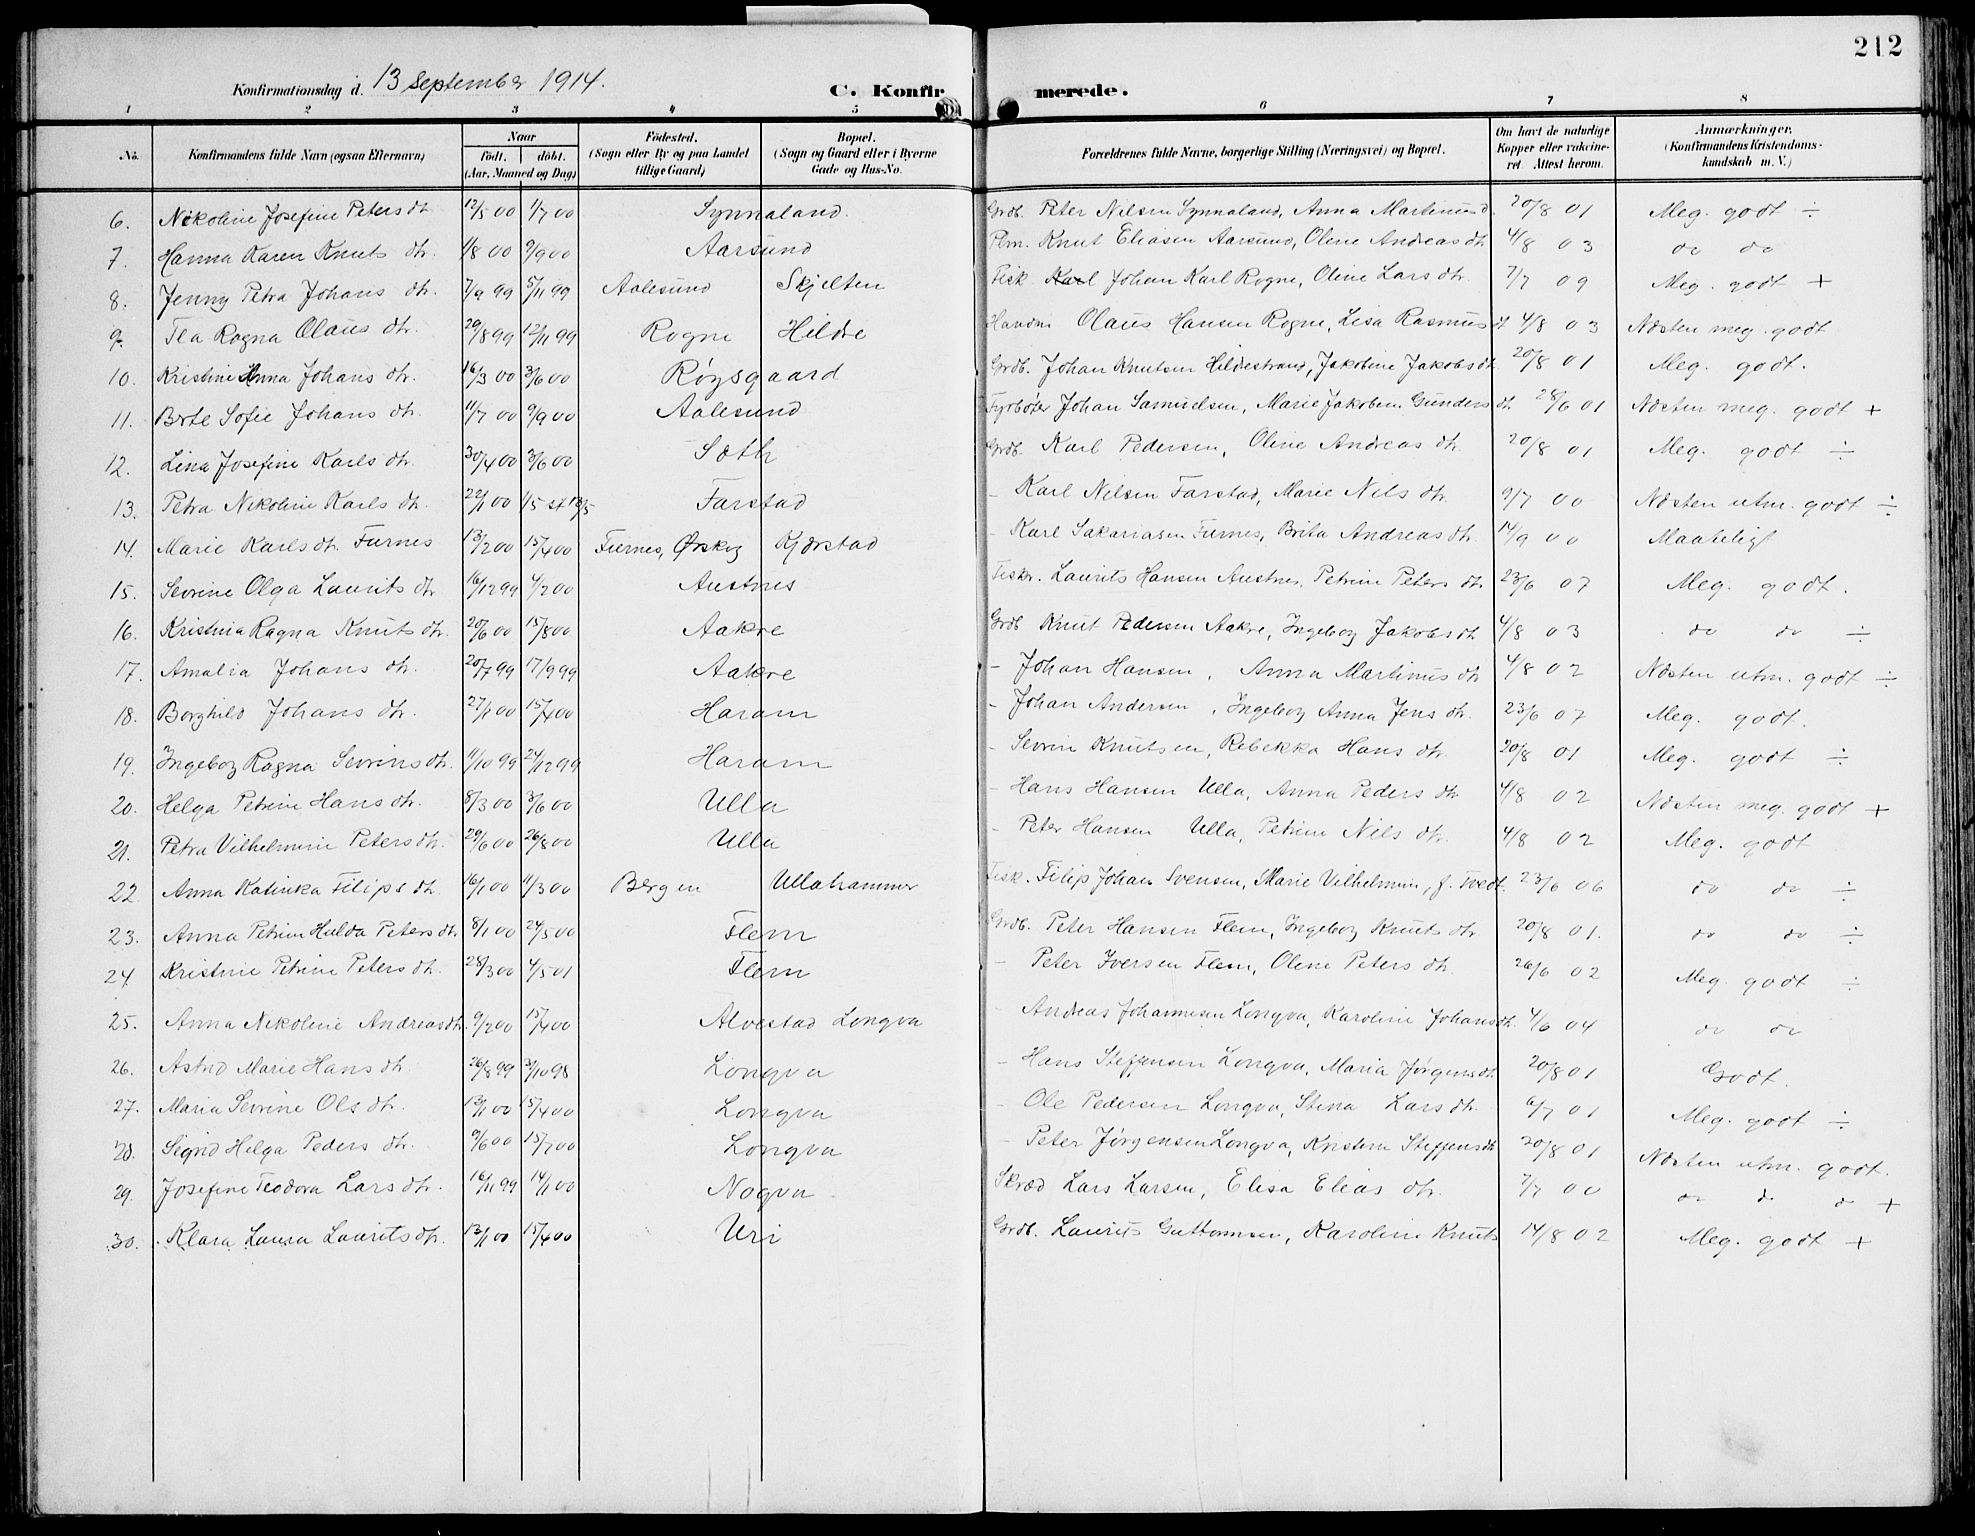 212
Konfirmationsdag d. 13 September 1914. C. Konfirmerede.
1 2 3 4 5 6 7 8
No. Konfirmandens fulde Navn (ogsaa Efternavn) Naar født. døbt. (Aar, Maaned og Dag) Fødested. (Sogn eller By og paa Landet tillige Gaard) Bopæl. (Sogn og Gaard eller i Byerne Gade og Hus-No. Forældrenes fulde Navne, borgerlige Stilling (Næringsvei) og Bopæl. Om havt de naturlige Kopper eller vakcineret. Attest herom. Anmærkninger. (Konfirmandens Kristendomskundskab m. V.)
6. Nikoline Josefine Petersdtr 12/5 00 1/7 00 Synnaland. Grdb. Peter Nilsen Synnaland, Anna Martinusd. 20/8 01 Meg. godt ÷
7. Hanna Karen Knutsdtr. 1/8 00 9/9 00 Aarsund Plm. Knut Eliasen Aarsund, Oline Andreasdtr 4/8 03 do do
8. Jenny Petra Johansdtr. 7/9 99 5/11 99 Aalesund Skjelten Fisk Johan Karl Rogne, Oline Larsdtr. 7/7 09 Meg. godt +
9. Tea Ragna Olausdtr. 29/8 99 12/11 99 Rogne Hildre Handm Olaus Hansen Rogne, Lisa Rasmusdt 4/8 03 Næsten meg. godt
10. Kristine Anna Johansdtr. 16/3 00 3/6 00 Røysgaard Grdb. Johan Knutsen Hildestrand, Jakobine Jakobsdtr 20/8 01 Meg. godt.
11. Brte Sofie Johansdtr. 11/7 00 9/9 00 Aalesund Fyrbøter Johan Samuelsen, Marie Jakobin. Gundersdtr 28/6 01 Næsten meg. godt +
12. Lina Josefine Karlsdtr. 30/4 00 3/6 00 Sæth Grdb. Karl Pedersen, Oline Andreasdtr. 20/8 01 Meg. godt ÷
13. Petra Nikoline Karlsdtr. 22/1 00 1/5 st 13/5 Farstad - Karl Nilsen Farstad, Marie Nilsdtr. 9/7 00 Næsten utm. godt ÷
14. Marie Karlsdtr. Furnes 13/2 00 15/4 00 Furnes, Ørskog Kjærstad - Karl Sakariasen Furnes, Brita Andreasdtr. 14/9 00 Maateligt
15. Sevrine Olga Lauritsdtr 16/12 99 4/2 00 Austnes Fiskr. Laurits Hansen Austnes, Petrine Petersdtr 23/6 07 Meg. godt.
16. Kristina Ragna Knutsdtr. 20/6 00 15/8 00 Aakre Grdb Knut Pedersen Aakre, Ingeborg Jakobsdtr 4/8 03 do do ÷
17. Amalia Johansdtr. 20/7 99 17/9 99 Aakre - Johan Hansen, Anna Martinusdtr 4/8 02 Næsten utm. godt ÷
18. Borghild Johansdtr. 27/1 00 15/4 00 Haram - Johan Andersen, Ingeborg Anna Jensdtr. 23/6 07 Meg. godt.
19. Ingeborg Ragna Sevrinsdtr. 11/10 99 24/12 99 Haram - Sevrin Knutsen, Rebekka Hansdtr. 20/8 01 Meg. godt ÷
20. Helga Petrine Hansdtr. 8/3 00 3/6 00 Ulla - Hans Hansen Ulla, Anna Pedersdtr 4/8 02 Næsten meg. godt +
21. Petra Vilhelmine Petersdtr. 29/6 00 26/8 00 Ulla - Peter Hansen Ulla, Petrine Nilsdtr. 4/8 02 Meg. godt
22. Anna Katinka Filipsdtr. 16/1 00 11/3 00 Bergen Ullahammer Fisk. Filip Johan Svensen, Marie Vilhelmine, f. Tvedt 23/6 06 do do ÷
23. Anna Petrine Hulda Petersdtr 8/1 00 24/5 00 Flem Grdb. Peter Hansen Flem, Ingeborg Knutsdtr. 20/8 01. do do ÷
24 Kristine Petrine Petersdtr. 28/3 00 4/5 01 Flem - Peter Iversen Flem, Oline Petersdtr. 26/6 02 Meg. godt ÷
25. Anna Nikoline Andreasdtr. 9/2 00 15/4 00 Alvestad Longva - Andreas Johannesen Longva, Karoline Johansdtr. 4/6 04 do do
26. Astrid Marie Hansdtr. 26/8 99 3/10 98 Longva - Hans Steffensen Longva, Maria Jørgensdtr. 20/8 01 Godt.
27. Maria Sevrine Olsdtr. 13/1 00 15/4 00 Longva - Ole Pedersen Longva, Stina Larsdtr. 6/7 01 Meg. godt ÷
28. Sigrid Helga Pedersdtr. 9/6 00 15/7 00 Longva - Peter Jørgensen Longva, Kristine Steffensdtr 20/8 01 Næsten utm. godt.
29. Josefine Teodora Larsdtr. 16/11 99 14/1 00 Nogva Skræd Lars Larsen, Elisa Eliasdtr. 7/7 00 do do do +
30. Klara Laura Lauritsdtr. 13/1 00 15/4 00 Uri Grdb. Laurits Guttormsen, Karoline Knuts 14/8 02 Meg. godt +